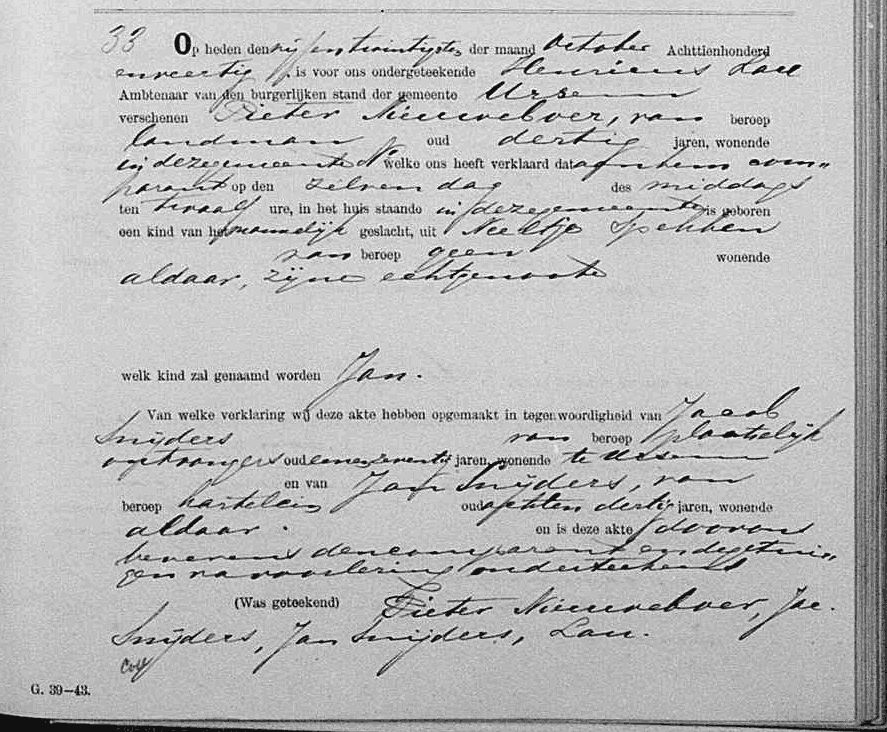 33 Op heden den vijf en twintigsten der maand October Achttienhonderd
en veertig, is voor ons ondergeteekende Henricus Lau
Ambtenaar van den burgerlijken stand der gemeente Ursem
verschenen Pieter Nieuweboer, van beroep
landman oud dertig jaren, wonende
in deze gemeente welke ons heeft verklaard dat aan hem com„
parant op den zelven dag des middags
ten twaalf ure, in het huis staande in deze gemeente is geboren
een kind van het mannelijk geslacht, uit Neeltje Spekken
van beroep geen wonende
aldaar, zijne echtgenoote
welk kind zal genaamd worden Jan.
Van welke verklaring wij deze akte hebben opgemaakt in tegenwoordigheid van Jacob
Snijders van beroep plaatselijk
ontvangers oud een en zeventig jaren, wonende te Ursem
en van Jan Snijders, van
beroep kastelein oud acht en dertig jaren, wonende
aldaar. en is deze akte door ons
benevens den comparant en de getui„
gen na voorlezing onderteekend
(Was geteekend) Pieter Nieuweboer, Jac.
Snijders, Jan Snijders, Lau.
G. 39—43.